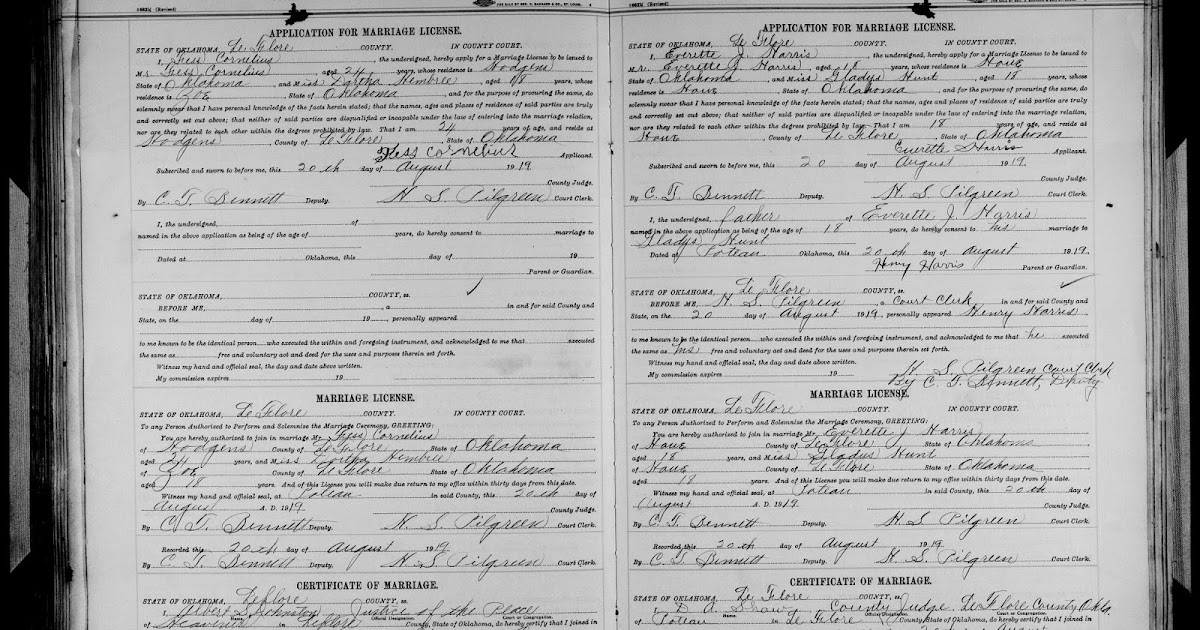 1663½ (Revised)
APPLICATION FOR MARRIAGE LICENSE.
STATE OF OKLAHOMA, Le Flore COUNTY. IN COUNTY COURT.
I, Fess Cornelius, the undersigned, hereby apply for a Marriage License to be issued to
Mr. Fess Cornelius, aged 24 years, whose residence is Hodgens
State of Oklahoma and Miss Zortha Hembree, aged 18 years, whose
residence is Zoe, State of Oklahoma, and for the purpose of procuring the same, do
solemnly swear that I have personal knowledge of the facts herein stated; that the names, ages and places of residence of said parties are truly
and correctly set out above; that neither of said parties are disqualified or incapable under the law of entering into the marriage relation,
nor are they related to each other within the degrees prohibited by law. That I am 24 years of age, and reside at
Hodgens, County of Le Flore, State of Oklahoma
Fess Cornelius Applicant.
Subscribed and sworn to before me, this 20th day of August 1919
County Judge.
By C. T. Bennett Deputy. H S Pilgreen Court Clerk.
I, the undersigned, of
named in the above application as being of the age of years, do hereby consent to marriage to
Dated at Oklahoma, this day of 19
Parent or Guardian.
STATE OF OKLAHOMA, COUNTY, ss.
BEFORE ME, a in and for said County and
State, on the day of 19 , personally appeared
to me known to be the identical person who executed the within and foregoing instrument, and acknowledged to me that executed
the same as free and voluntary act and deed for the uses and purposes therein set forth.
Witness my hand and official seal, the day and date above written.
My commission expires 19
MARRIAGE LICENSE.
STATE OF OKLAHOMA, Le Flore COUNTY. IN COUNTY COURT.
To any Person Authorized to Perform and Solemnize the Marriage Ceremony, GREETING:
You are hereby authorized to join in marriage Mr. Fess Cornelius
of Hodgens County of Le Flore State of Oklahoma
aged 24 years, and Miss Zortha Hembree
of Zoe County of Le Flore State of Oklahoma
aged 18 years. And of this License you will make due return to my office within thirty days from this date.
Witness my hand and official seal, at Poteau in said County, this 20th day of
August A. D. 1919. County Judge.
By C. T. Bennett Deputy. H. S. Pilgreen Court Clerk.
Recorded this 20th day of August 1919
By C. T. Bennett Deputy. H. S. Pilgreen Court Clerk.
CERTIFICATE OF MARRIAGE.
STATE OF OKLAHOMA, Leflore COUNTY, ss.
I, Elbert S. Johnston Justice of the Peace
Name. Official Designation. Court or Congregation.
of Heavener in Leflore County, State of Oklahoma, do hereby certify that I joined in
1663½ (Revised)
APPLICATION FOR MARRIAGE LICENSE.
STATE OF OKLAHOMA, Le Flore COUNTY. IN COUNTY COURT.
I, Everette J. Harris, the undersigned, hereby apply for a Marriage License to be issued to
Mr. Everette J. Harris, aged 18 years, whose residence is Houe
State of Oklahoma, and Miss Gladys Hunt, aged 18 years, whose
residence is Houe, State of Oklahoma, and for the purpose of procuring the same, do
solemnly swear that I have personal knowledge of the facts herein stated; that the names, ages and places of residence of said parties are truly
and correctly set out above; that neither of said parties are disqualified or incapable under the law of entering into the marriage relation,
nor are they related to each other within the degrees prohibited by law. That I am 18 years of age, and reside at
Houe, County of Le Flore, State of Oklahoma
Everette Harris Applicant.
Subscribed and sworn to before me, this 20 day of August 1919.
County Judge.
By C. T. Bennett Deputy. H. S. Pilgreen Court Clerk.
I, the undersigned, father of Everette J. Harris
named in the above application as being of the age of 18 years, do hereby consent to his marriage to
Gladys Hunt
Dated at Poteau Oklahoma, this 20th day of August 1919.
Henry Harris Parent or Guardian.
STATE OF OKLAHOMA, Le Flore COUNTY, ss.
BEFORE ME, H. S. Pilgreen, a Court Clerk in and for said County and
State, on the 20 day of August 1919, personally appeared Henry Harris
to me known to be the identical person who executed the within and foregoing instrument, and acknowledged to me that he executed
the same as his free and voluntary act and deed for the uses and purposes therein set forth.
Witness my hand and official seal, the day and date above written.
My commission expires 19 H. S. Pilgreen Court Clerk
By C. T. Bennett, Deputy
MARRIAGE LICENSE.
STATE OF OKLAHOMA, Le Flore COUNTY. IN COUNTY COURT.
To any Person Authorized to Perform and Solemnize the Marriage Ceremony, GREETING:
You are hereby authorized to join in marriage Mr. Everette J Harris
of Houe County of Le Flore State of Oklahoma
aged 18 years, and Miss Gladys Hunt
of Houe County of Le Flore State of Oklahoma
aged 18 years. And of this License you will make due return to my office within thirty days from this date.
Witness my hand and official seal, at Poteau in said County, this 20th day of
August A. D. 1919 County Judge.
By C. T. Bennett Deputy. H. S Pilgreen Court Clerk.
Recorded this 20th day of August 1919
By C. T. Bennett Deputy. H. S. Pilgreen Court Clerk.
CERTIFICATE OF MARRIAGE.
STATE OF OKLAHOMA, Le Flore COUNTY, ss.
I, D A. Shaw, County Judge, Le Flore County Okla.
Name. Official Designation. Court or Congregation.
of Poteau in Le Flore County, State of Oklahoma, do hereby certify that I joined in